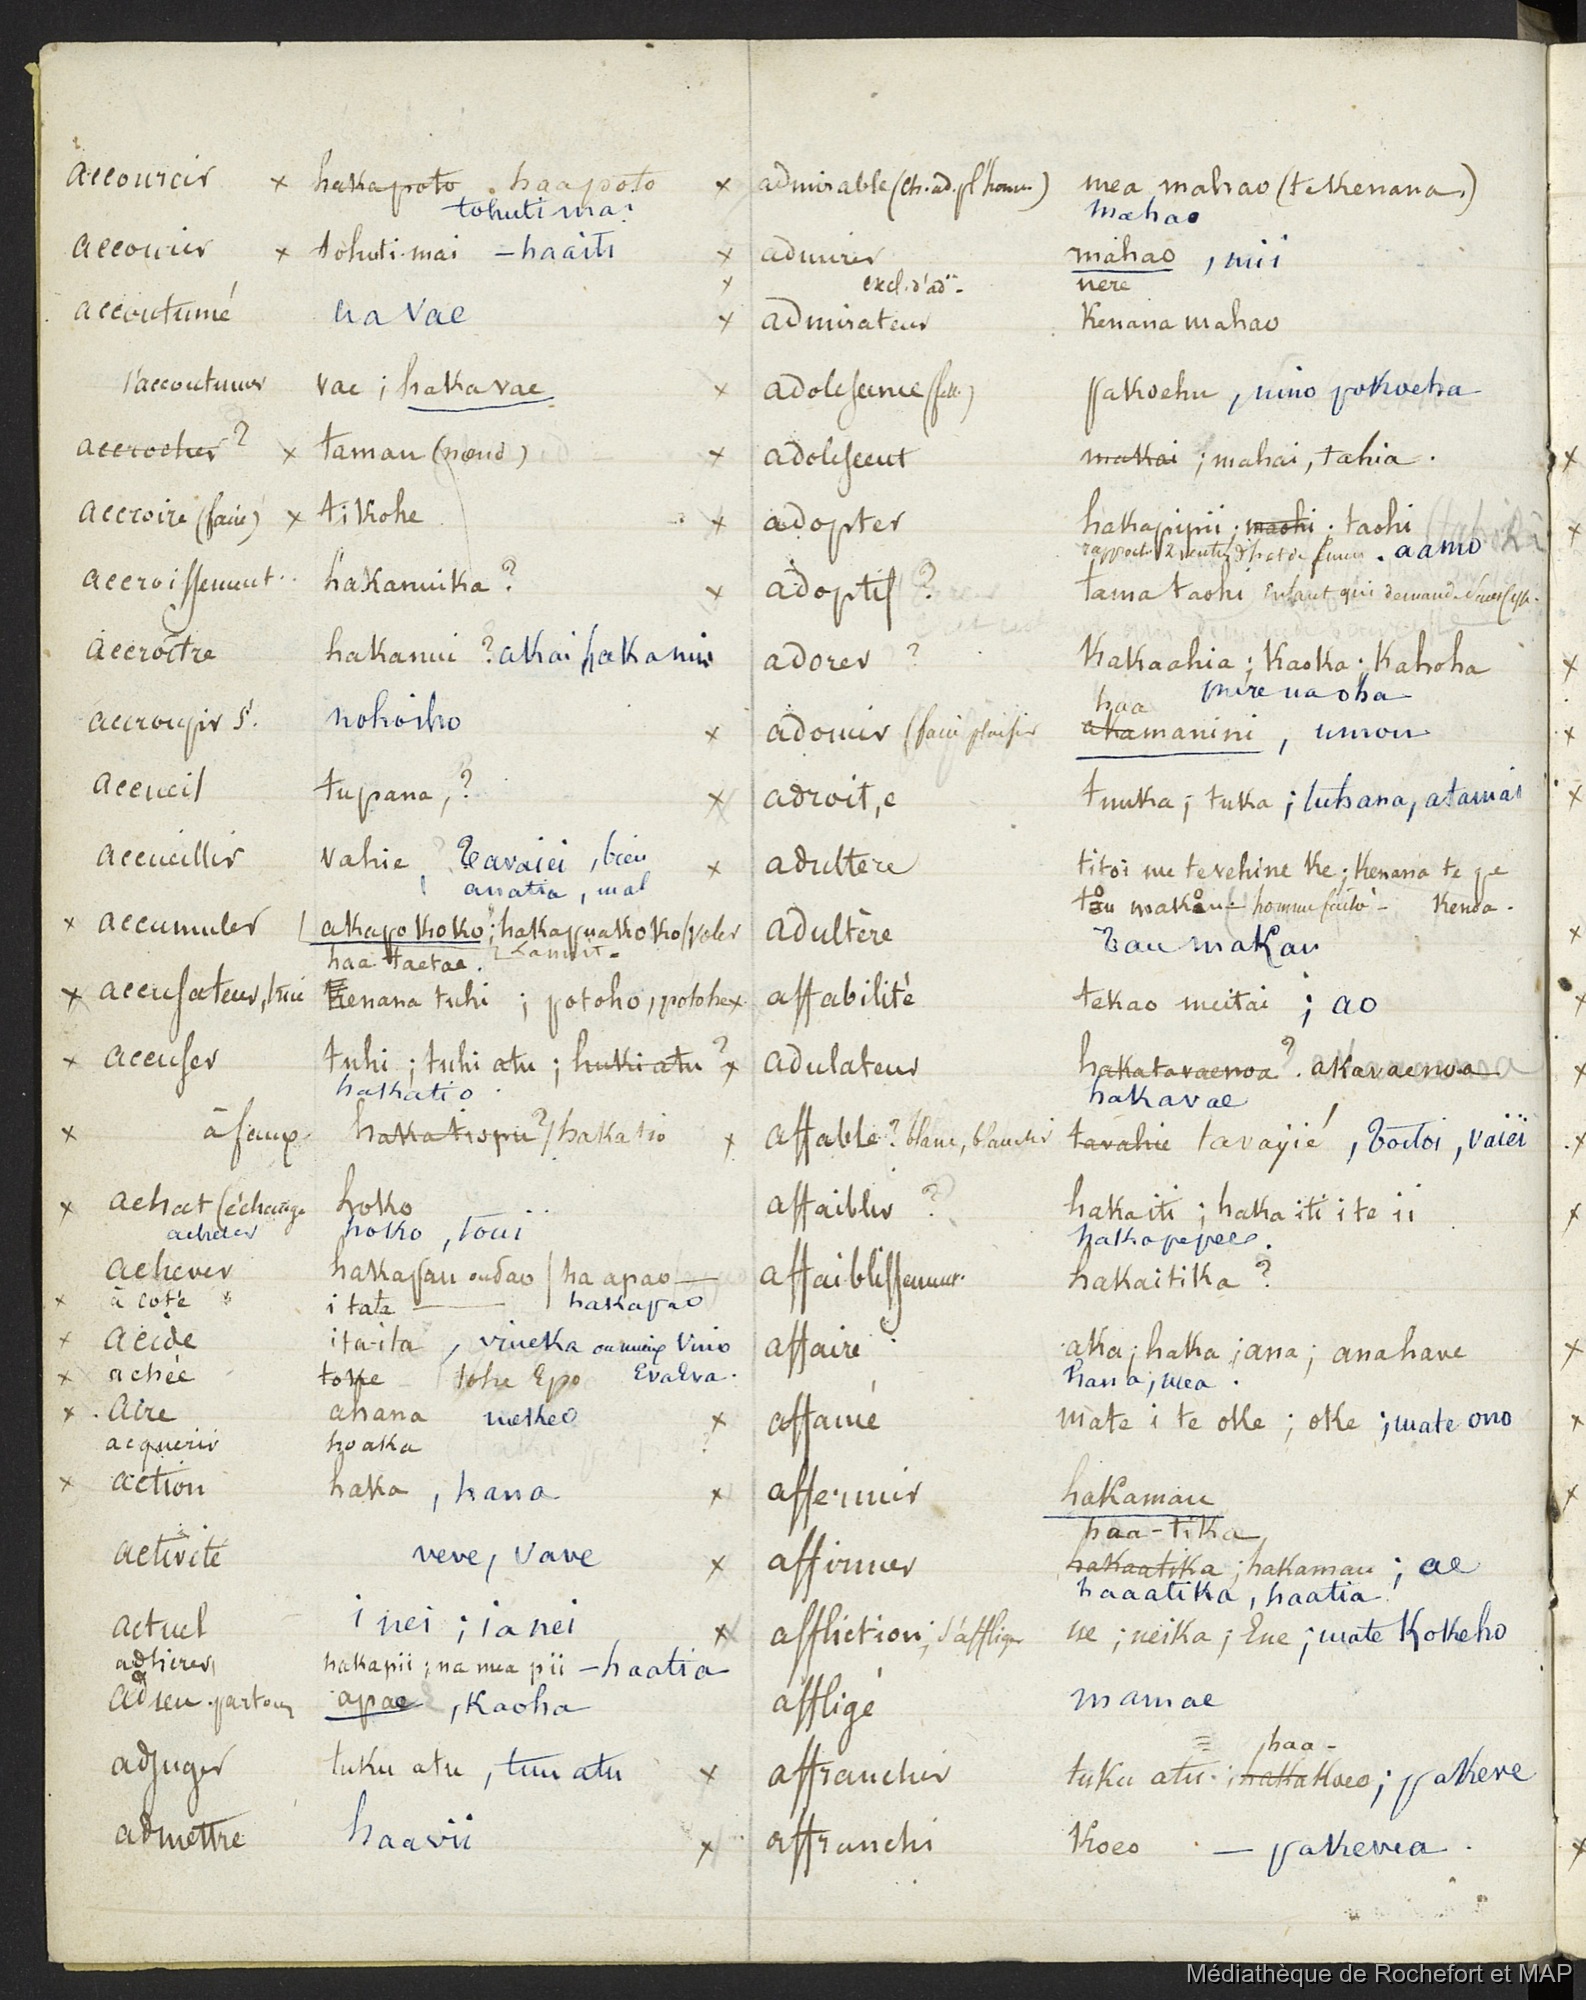 accourcir × hakapoto . haapoto
tohuti mai
accourir × tohuti mai – haaiti
accoutumé ua vae
s'accoutumer vae ; hakavae
accrocher ? × tamau (nœud)
accroire (faire) × tikohe
accroissement .. hakanuika ?
accroître hakanui ? akai hakanui
accroupir s'. nohoiho
accueil tupana, ?
accueillir vahie , tavaiei , bien
anatia , mal
× accumuler akapokoko ; hakapuakoko
haa taetae.
× accusateur, trice Kenana tuhi ; potoho, potohe
× accuser tuhi ; tuhi atu ; hukiatu ?
hakatio
× à faux hakatiopu ? / hakatio
× achat (échange hoko
acheter hoko , toui
achever hakapau oudao / haapao —
× à coté i tata — hakapao
× acide ita-ita , vineka ou mieux vinio
× achée toke tohe Epo EvaEva .
× . acre ahana mekeo
acquerir hoaka
× action haka , hana
activité veve, vave
actuel i nei ; ia nei
adhérer hakapii ; na mea pii – haatia
adieu . partout apae , Kaoha
adjuger tuku atu , tuu atu
admettre haavii
× admirable (ch. ad. pl homme) mea mahao (te kenana.)
mahao
× admirer mahao , mii
× excl. d'ad° – nere
× admirateur Kenana mahao
× adolescence (fille) pakoehu , nino pokoeha
× adolescent makai ; mahai, tahia . ×
× adopter hakapipii ; maohi . taohi ×
. aamo
× adoptif ? tama taohi enfant qui demande
adorer ? Kakaahia ; Kaoka ; Kahoha ×
haa pure ua oha
× adoucir (faire plaisir akamanini , umou ×
× adroit, e tuuka ; tuka ; tuhana, atamai ×
× adultere titoi me te vehine ke ; Kenana te pe
tou makou – homme – kenoa .
adultère Tau makau ×
× affabilité tekao meitai ; ao ×
× adulateur hakatavaenoa ? . akavaenoa ×
hakavae
× affable ? blanc, blanchir tavahie tavayié , Toitoi , vaiëi ×
affaiblir ? hakaiti ; haka iti i te ii ×
hakapepee .
affaiblissement . hakaitika ?
affaire aka ; haka ; ana ; anahave ×
hana , mea .
× affamé mate i te oke ; oke ; mate ono ×
× affermir hakamau ×
haa-tika
× affirmer hakaatika ; hakamau ; ae
haaatika , haatia
× affliction ; s'affliger ue ; ueika ; Eue ; mate Kokeho
affligé mamae
haa –
× affranchir tuku atu . ; hakakoeo ; pakeve
× affranchi Koeo — pakevea . ×
Médiathèque de Rochefort et MAP